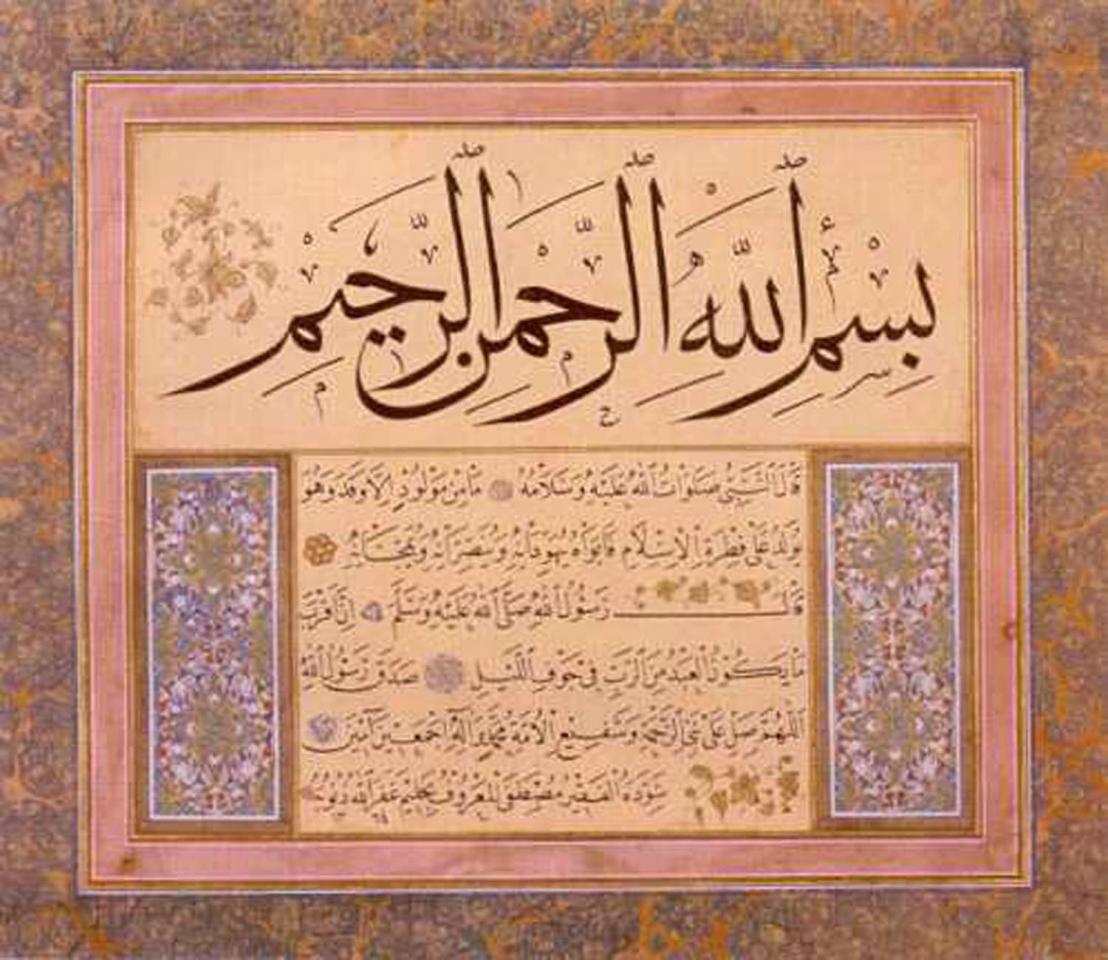 بِسْمِ اللّٰهِ الرَّحْمٰنِ الرَّحِيمِ
قَالَ النَّبِيُّ صَلَوَاتُ اللّٰهِ عَلَيْهِ وَسَلَامُهُ مَا مِنْ مَوْلُودٍ اِلَّا وَقَدْ وَهُوَ
يُولَدُ عَلَى فِطْرَةِ الْاِسْلَامِ فَاَبَوَاهُ يُهَوِّدَانِهِ وَيُنَصِّرَانِهِ وَيُمَجِّسَانِهِ
قَالَ رَسُولُ اللّٰهِ صَلَّى اللّٰهُ عَلَيْهِ وَسَلَّمَ اِنَّ اَقْرَبَ
مَا يَكُونُ الْعَبْدُ مِنَ الرَّبِّ فِي جَوْفِ اللَّيْلِ صَدَقَ رَسُولُ اللّٰهِ
اَللّٰهُمَّ صَلِّ عَلَى نَبِيِّ الرَّحْمَةِ وَشَفِيعِ الْاُمَّةِ مُحَمَّدٍ وَآلِهِ اَجْمَعِينَ آمِينَ
سَوَّدَهُ الْفَقِيرُ مُصْطَفَى الْمَعْرُوفُ بِحَلِيم غَفَرَ اللّٰهُ ذُنُوبَهُ